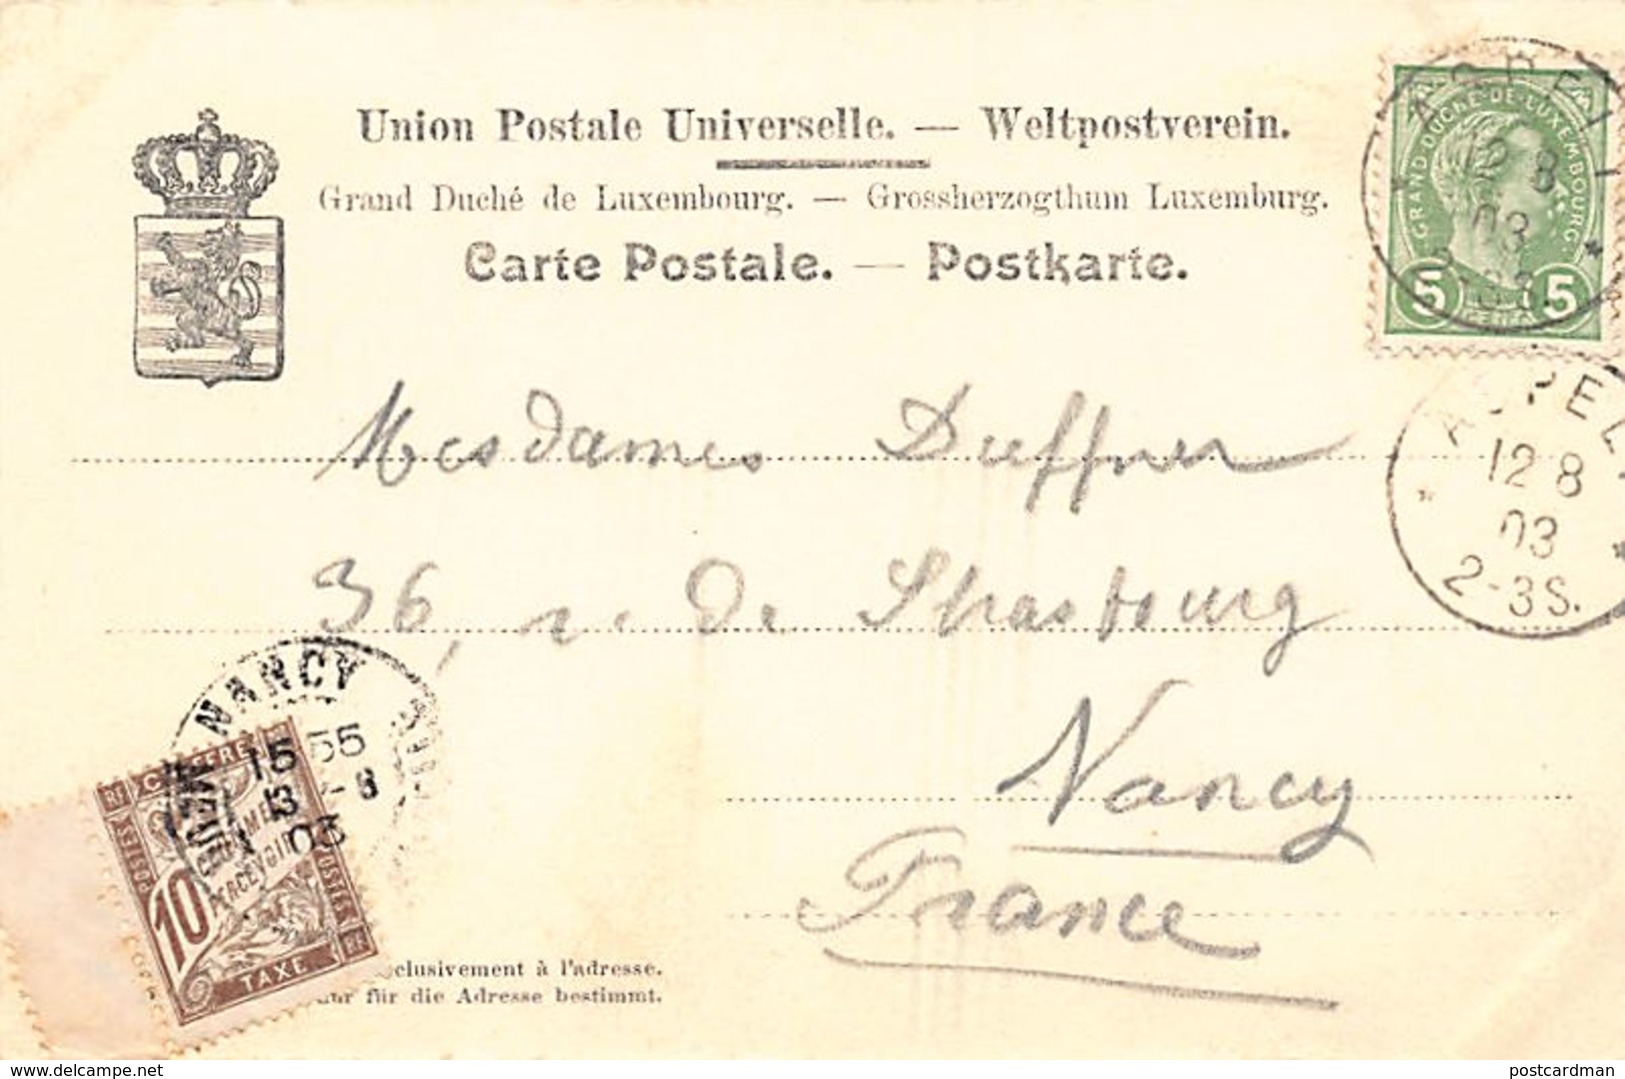 Union Postale Universelle. — Weltpostverein.
Grand Duché de Luxembourg. — Grossherzogthum Luxemburg.
Carte Postale. — Postkarte.
GRAND-DUCHÉ-DE-LUXEMBOURG
5 5
12 8
03
ASPELT
12 8
03
2-3S.
Mesdames Dieffner
36, r. de Strasbourg
Nancy
France
NANCY
15 55
13 -8
03
CHIFFRE
RF
POSTES
POSTES
10
PERCEVOIR
TAXE
RF
clusivement à l'adresse.
ur für die Adresse bestimmt.
delcampe.net
postcardman